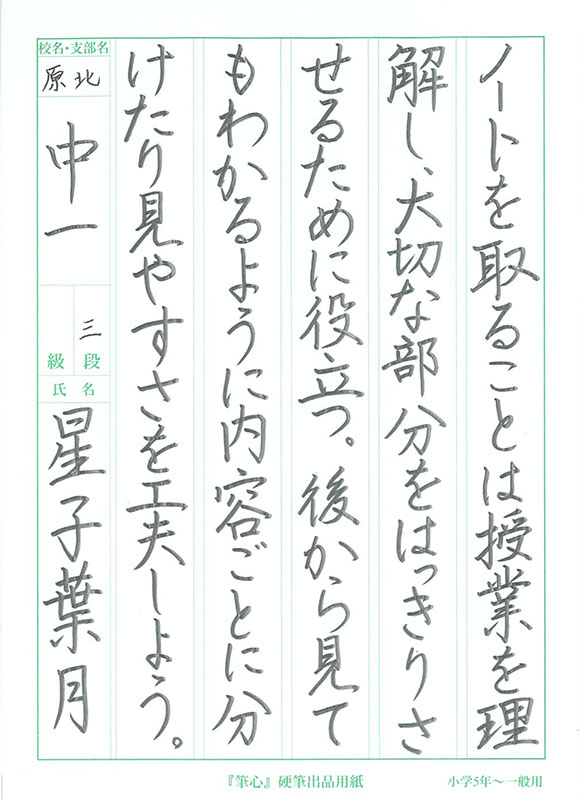 ノートを取ることは授業を理
解し、大切な部分をはっきりさ
せるために役立つ。後から見て
もわかるように内容ごとに分
けたり見やすさを工夫しよう。
校名・支部名
原北
中一
三
段
級
氏名
星子葉月
『筆心』硬筆出品用紙
小学5年〜一般用